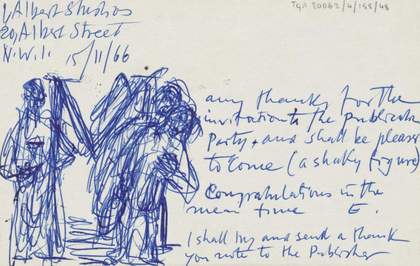 TGA 20062/4/155/48
1, Albert Studios
20, Albert Street
N.W.1. 15/11/66
any thanks for the
invitation to the publisher
Party, and shall be pleased
to come (a shaky figure)
Congratulations in the
mean time E.
I shall try and send a thank
you note to the Publisher